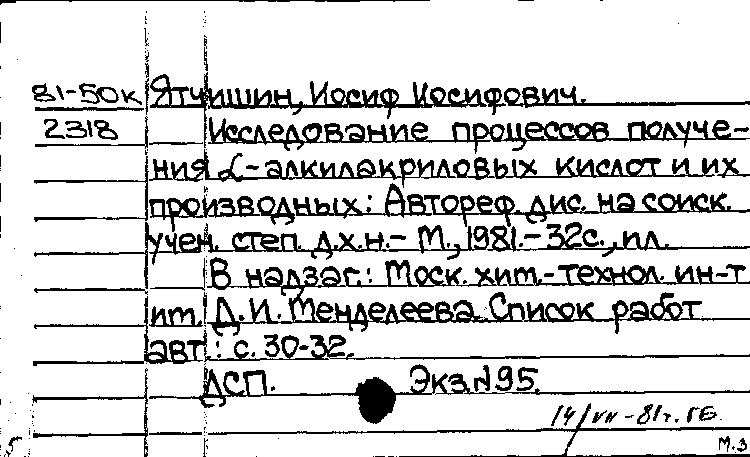 81-50к Ятчишин, Иосиф Иосифович.
2318 Исследование процессов получе-
ния α-алкилакриловых кислот и их
производных: Автореф. дис. на соиск.
учен. степ. д.х.н.- М., 1981.- 32с., ил.
В надзаг.: Моск. хим.-технол. ин-т
им. Д.И. Менделеева. Список работ
авт.: с. 30-32.
ДСП. Экз.№95.
14/VII-81г. ГБ
5 М.З